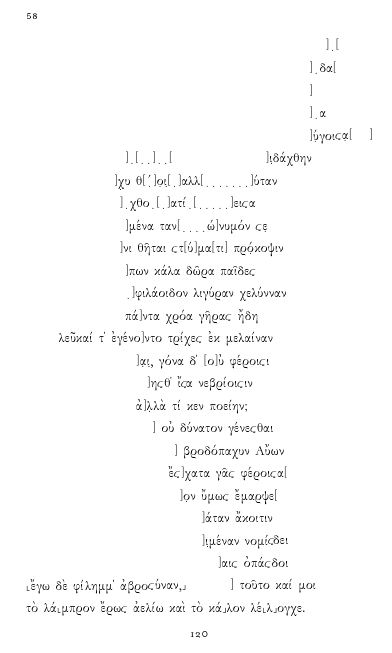 58
] ̣[
] ̣δα[
]
] ̣α
]ύ̣γοιϲα̣[ ]
] ̣[ ̣ ̣] ̣ ̣[ ]ι̣δάχθην
]χυ θ[ ̣́]οι̣[ ̣]αλλ[ ̣ ̣ ̣ ̣ ̣ ̣ ̣]ύταν
] ̣χθο ̣[ ̣]ατί ̣[ ̣ ̣ ̣ ̣ ̣]ειϲα
]μένα ταν[ ̣ ̣ ̣ ̣ώ]νυμόν ϲε̣
]νι θῆται ϲτ[ύ]μα[τι] πρό̣κοψιν
]πων κάλα δῶρα παῖδεϲ
̣]φιλάοιδον λιγύραν χελύνναν
πά]ντα χρόα γῆραϲ ἤδη
λεῦκαί τ’ ἐγένο]ντο τρίχεϲ ἐκ μελαίναν
]α̣ι, γόνα δ’ [ο]ὐ φέροιϲι
]ηϲθ’ ἴϲα νεβρίοιϲιν
ἀ]λ̣λὰ τί κεν ποείην;
] οὐ δύνατον γένεϲθαι
] βροδόπαχυν Αὔων
ἔϲ]χατα γᾶϲ φέροιϲα[
]ο̣ν ὔμωϲ ἔμαρψε[
]άταν ἄκοιτιν
]ι̣μέναν νομίϲδει
]αιϲ ὀπάϲδοι
⸤ἔγω δὲ φίλημμ’ ἀβροϲύναν,⸥ ] τοῦτο καί μοι
τὸ λά⸤μπρον ἔρωϲ ἀελίω καὶ τὸ κά⸥λον λέ⸤λ⸥ογχε.
120